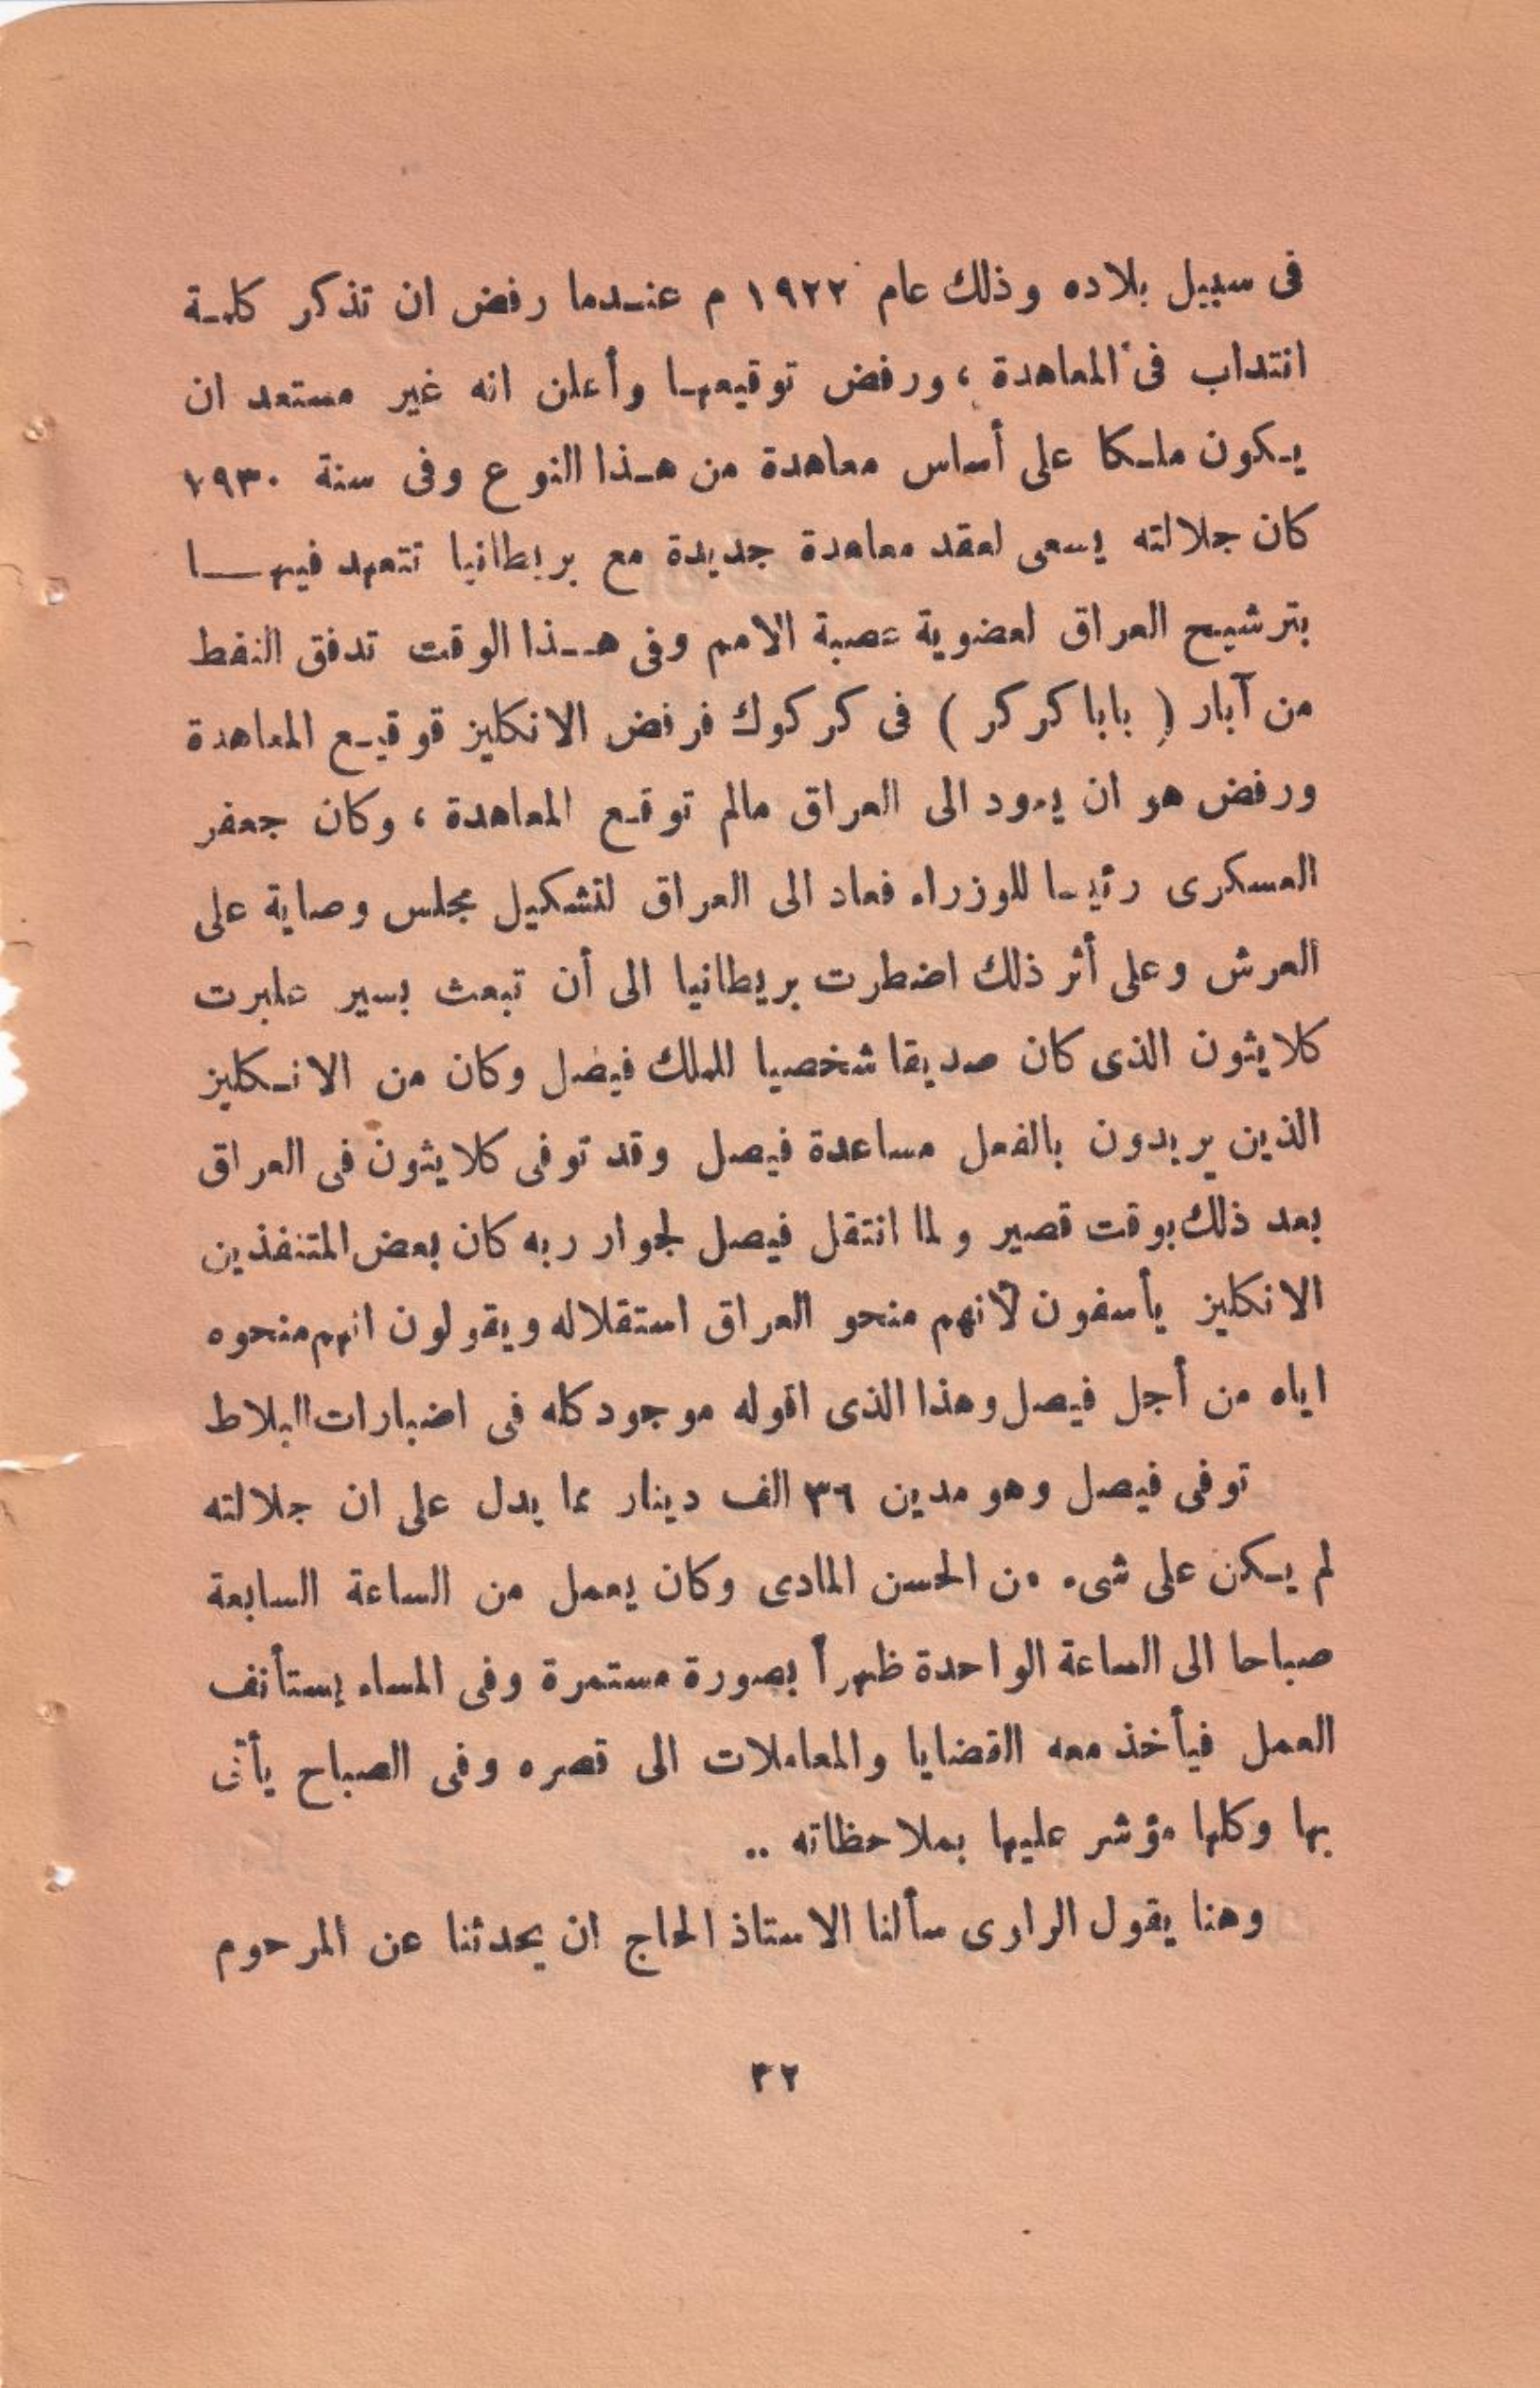 فى سبيل بلاده وذلك عام ١٩٢٢ م عنـدما رفض ان تذكر كلمـة
انتداب فى المعاهدة ، ورفض توقيعهـا وأعلن انه غير مستعد ان
يـكون ملـكا على أساس معاهدة من هـذا النوع وفى سنة ١٩٣٠
كان جلالته يسعى لعقد معاهدة جديدة مع بريطانيا تتعهد فيهــا
بترشيح العراق لعضوية عصبة الامم وفى هــذا الوقت تدفق النفط
من آبار ( بابا كركر ) فى كركوك فرفض الانكليز قوقيـع المعاهدة
ورفض هو ان يعود الى العراق مالم توقـع المعاهدة ، وكان جعفر
العسكرى رئيـا للوزراء فعاد الى العراق لتشكيل مجلس وصاية على
العرش وعلى أثر ذلك اضطرت بريطانيا الى أن تبعث بسير علبرت
كلايثون الذى كان صديقا شخصيا للملك فيصل وكان من الانـكليز
الذين يريدون بالفعل مساعدة فيصل وقد توفى كلايثون فى العراق
بعد ذلك بوقت قصير ولما انتقل فيصل لجوار ربه كان بعض المتنفذين
الانكليز يأسفون لأنهم منحو العراق استقلاله ويقولون انهم منحوه
اياه من أجل فيصل وهذا الذى اقوله موجود كله فى اضبارات البلاط
توفى فيصل وهو مدين ٣٦ الف دينار مما يدل على ان جلالته
لم يـكن على شىء من الحسن المادى وكان يعمل من الساعة السابعة
صباحا الى الساعة الواحدة ظهراً بصورة مستمرة وفى المساء يستأنف
العمل فيأخذ معه القضايا والمعاملات الى قصره وفى الصباح يأتى
بها وكلها مؤشر عليها بملاحظاته ..
وهنا يقول الراوى سألنا الاستاذ الحاج ان يحدثنا عن المرحوم
٣٢